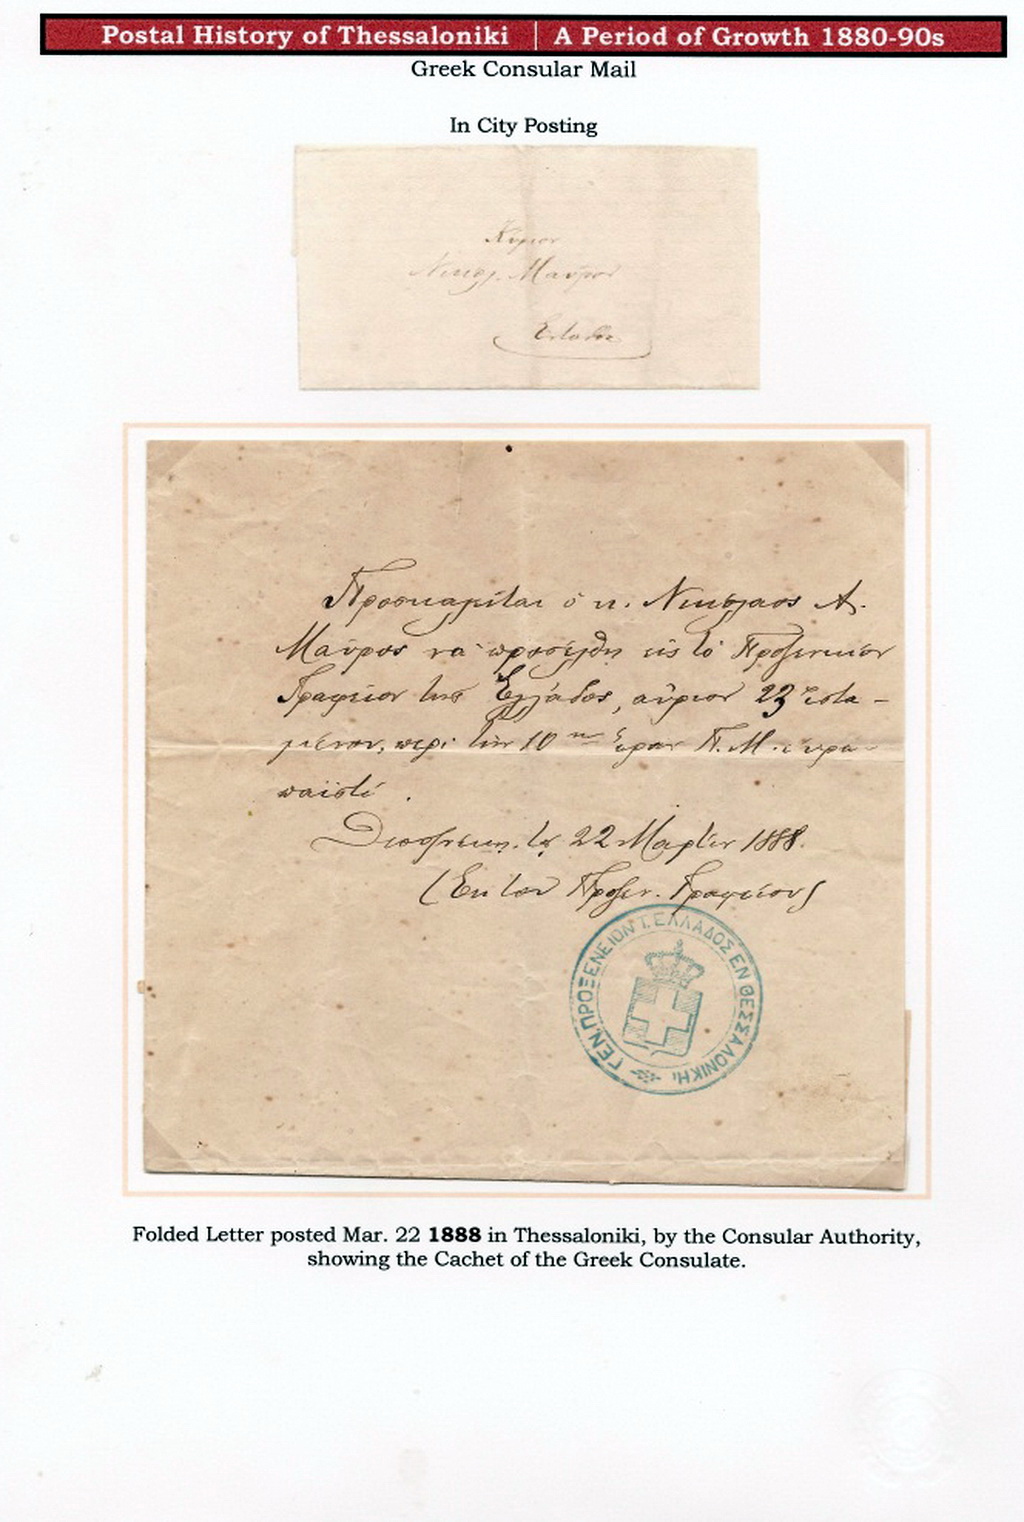 Postal History of Thessaloniki | A Period of Growth 1880-90s
Greek Consular Mail
In City Posting
Κύριον
Νικολ. Μαύρον
Ενταῦθα
Προσκαλεῖται ὁ κ. Νικόλαος Α.
Μαῦρος νὰ προσέλθῃ εἰς τὸ Προξενικὸν
Γραφεῖον τῆς Ἑλλάδος, αὔριον 23 ἱστα-
μένου, περὶ τὴν 10ην ὥραν Π.Μ.
Θεσσ/νίκῃ τῇ 22 Μαρτίου 1888.
(Ἐκ τοῦ Προξεν. Γραφείου)
ΓΕΝ. ΠΡΟΞΕΝΕΙΟΝ Τ. ΕΛΛΑΔΟΣ ΕΝ ΘΕΣΣΑΛΟΝΙΚΗι
Folded Letter posted Mar. 22 1888 in Thessaloniki, by the Consular Authority,
showing the Cachet of the Greek Consulate.